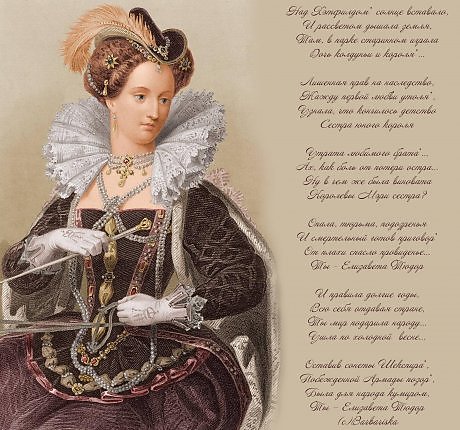 Над Хэтфилдом* солнце вставало,
И рассветом дышала земля,
Там, в парке старинном играла
Дочь колдуньи и короля*...
Лишенная прав на наследство,
Жажду первой любви утоля*,
Узнала, что кончилось детство
Сестра юного короля
Утрата любимого брата*...
Ах, как боль от потери остра...
Ну в чем же была виновата
Королевы Мэри сестра?
Опала, тюрьма, подозренья
И смертельный готов приговор*
От плахи спасло провиденье...
Ты – Елизавета Тюдор
И правила долгие годы,
Всю себя отдавая стране,
Ты мир подарила народу...
Ушла по холодной весне...
Оставив сонеты Шекспира*,
Побежденной Армады позор*,
Была для народа кумиром,
Ты – Елизавета Тюдор
(c)Barbariska